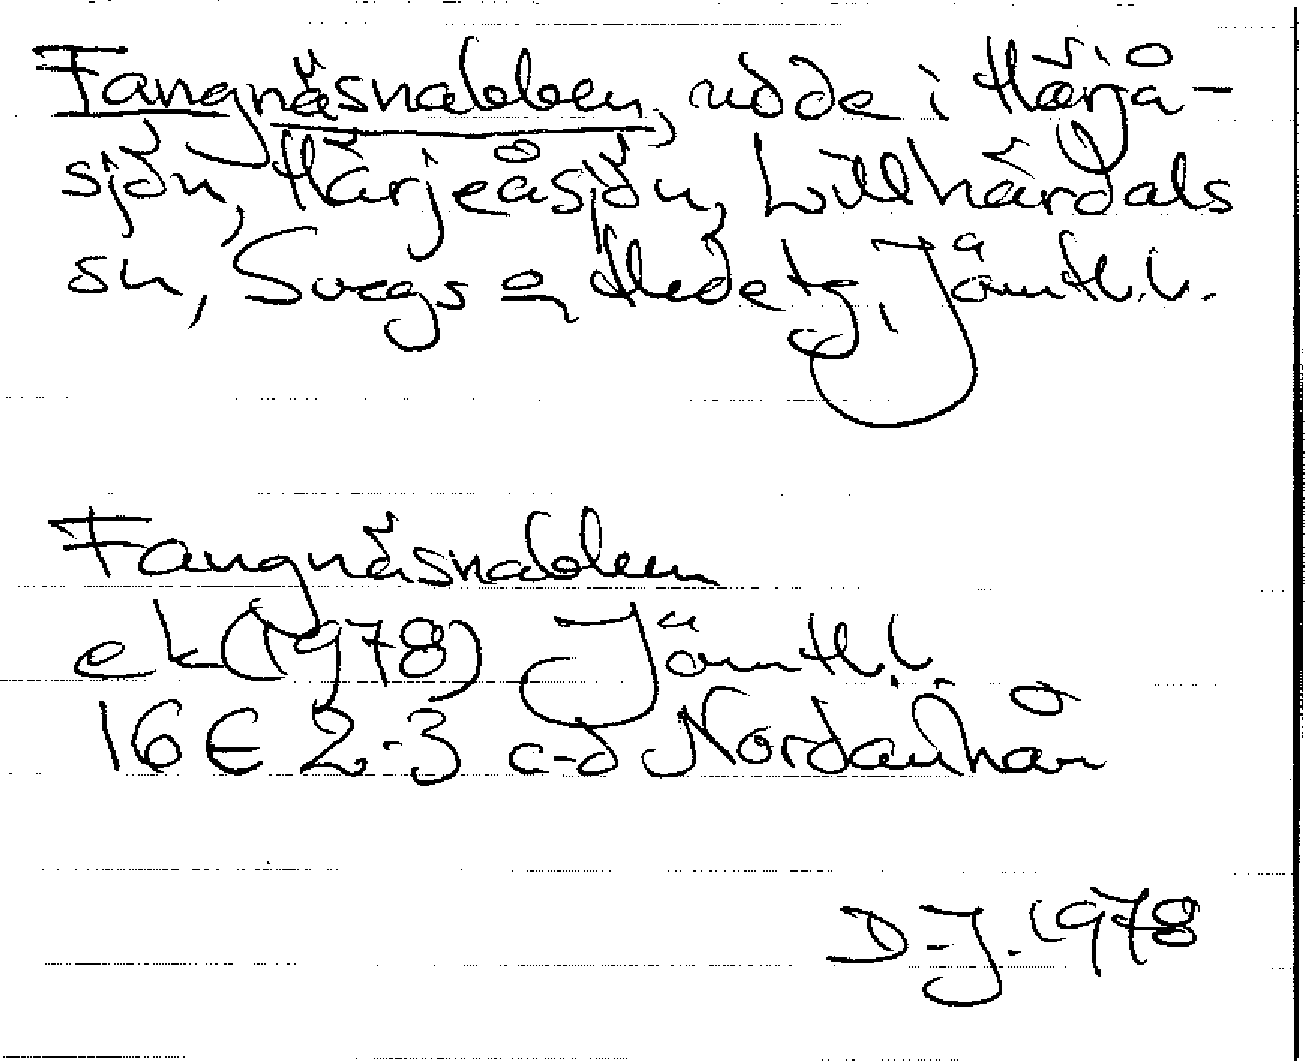 Fangnäsnabben, udde i Härjå-
sjön, Härjeåsjön, Lillhärdals
sn, Svegs o Hede tg, Jämtl.l.
Fangnäsnabben
ek (1978) Jämtl.l.
16 E 2-3 c-d Nordanhån
D-J. 1978